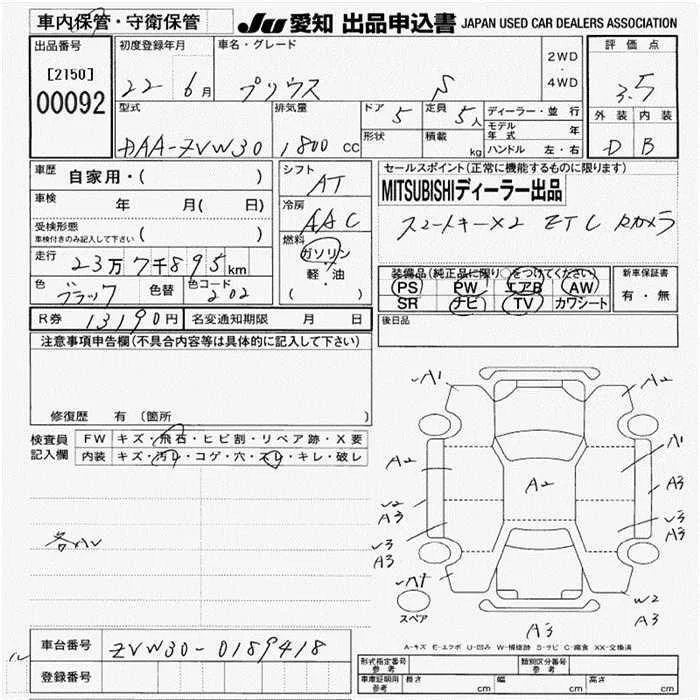 車内保管・守衛保管
JU 愛知 出品申込書 JAPAN USED CAR DEALERS ASSOCIATION
出品番号 初度登録年月 車名・グレード 2WD・4WD 評価点
[2150]
00092
22 6月 プリウス S 3.5
型式 排気量 ドア 5 定員 5人 ディーラー・並行 外装 内装
モデル年式 年
DAA-ZVW30 1800 cc 形状 積載 kg ハンドル 左・右 D B
車歴 自家用・( )
シフト AT
セールスポイント(正常に機能するものに限ります)
MITSUBISHIディーラー出品
車検 年 月( 日)
冷房 AAC
スマートキー×2 ETC Rカメラ
受検形態
車検付きのみ記入して下さい ( )
燃料 ガソリン・軽・油 ( )
走行 23万7千895km
装備品(純正品に限り○をつけてください) 新車保証書
PS PW エアB AW
SR ナビ TV カワシート 有・無
色 ブラック 色替 色コード 202
R券 13190円 名変通知期限 月 日
後日品
注意事項申告欄(不具合内容等は具体的に記入して下さい)
修復歴 有(箇所 )
検査員記入欄 FW キズ・飛石・ヒビ割・リペア跡・X要
内装 キズ・汚レ・コゲ・穴・スレ・キレ・破レ
A1 A2
A2 A2 A1
A3
A3 A3
A3
A1 W2
A3
スペア
A3
A-キズ E-エクボ U-凹み W-補修跡 S-サビ C-腐食 XX-交換済
車台番号 ZVW30-0189418
登録番号
形式指定番号 参考 類別区分番号 参考
車庫証明用 参考 長さ cm 幅 cm 高さ cm